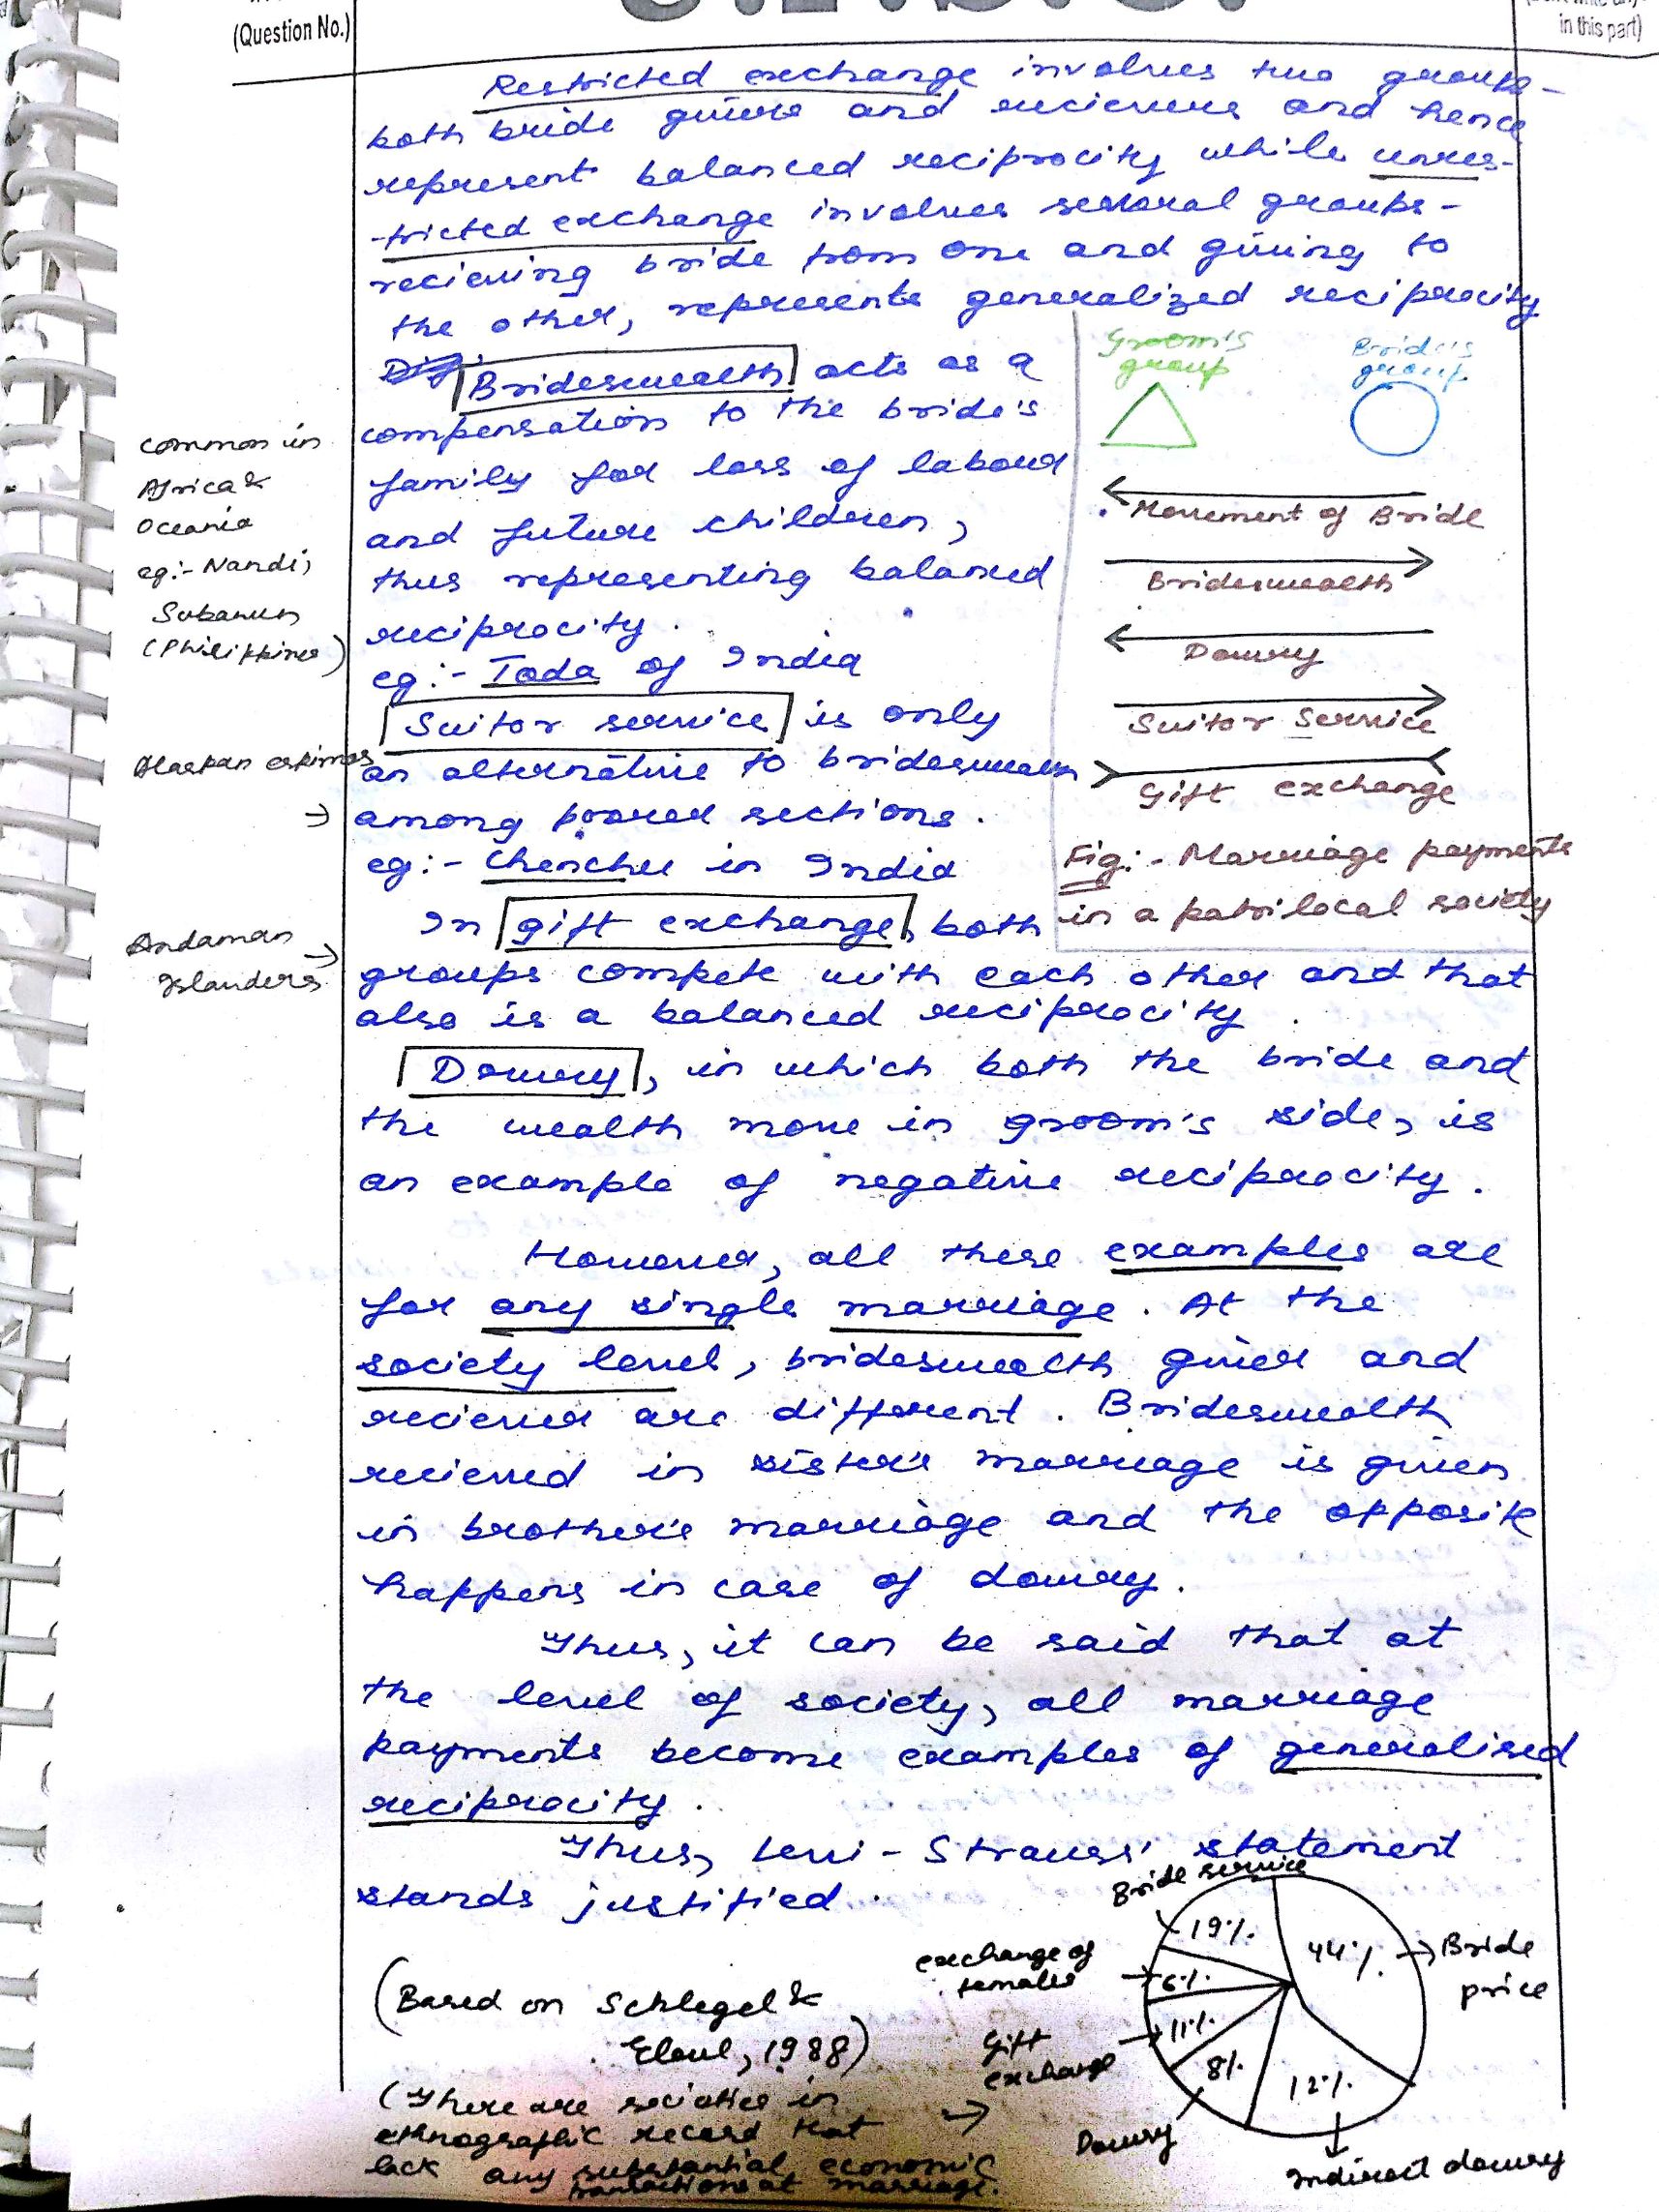 (Question No.)
in this part)
Restricted exchange involves two groups -
both bride givers and recievers and hence
represent balanced reciprocity while unres-
-tricted exchange involves several groups -
recieving bride from one and giving to
the other, represents generalized reciprocity
Brideswealth acts as a
compensation to the bride's
family for loss of labour
and future children,
thus representing balanced
reciprocity.
eg:- Toda of India
Suitor service is only
an alternative to brideswealth
among poorer sections.
eg:- Chenchu in India
In gift exchange, both
groups compete with each other and that
also is a balanced reciprocity.
Dowry, in which both the bride and
the wealth move in groom's side, is
an example of negative reciprocity.
However, all these examples are
for any single marriage. At the
society level, brideswealth giver and
reciever are different. Brideswealth
recieved in sister's marriage is given
in brother's marriage and the opposite
happens in case of dowry.
Thus, it can be said that at
the level of society, all marriage
payments become examples of generalised
reciprocity.
Thus, Levi-Strauss' statement
stands justified.
common in
Africa &
Oceania
eg:- Nandi,
Subanun
(Philippines)
Alaskan eskimos
→
Andaman
Islanders →
Groom's
group
Bride's
group
Movement of Bride
Brideswealth
Dowry
Suitor Service
Gift exchange
Fig:- Marriage payments
in a patrilocal society
(Based on Schlegel &
Eloul, 1988)
(There are societies in
ethnographic record that
lack any substantial economic
transactions at marriage.
Bride service
19%
44% → Bride
price
exchange of
females
6%
Gift
exchange
11%
8%
Dowry
12%
Indirect dowry